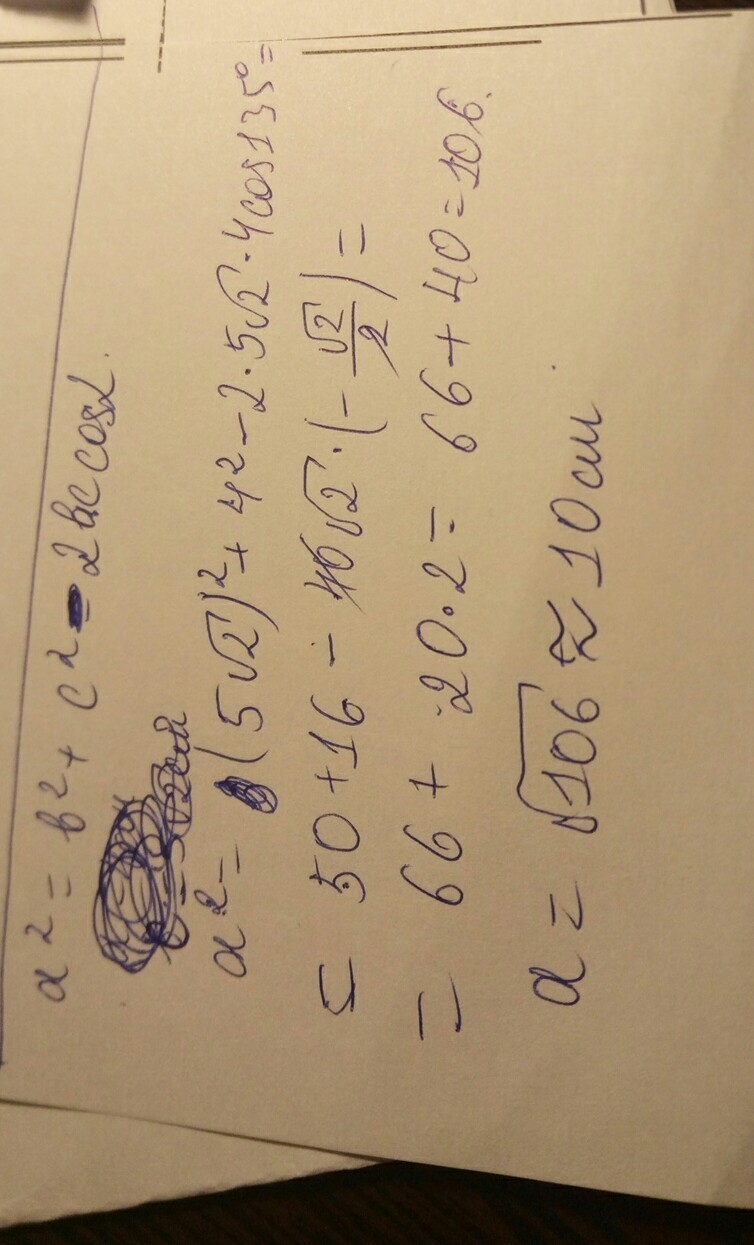 a² = b² + c² - 2bc cosα.
a² = (5√2)² + 4² - 2·5√2·4cos135° =
= 50 + 16 - 40√2·(-√2/2) =
= 66 + 20·2 = 66 + 40 = 106.
a = √106 ≈ 10 см